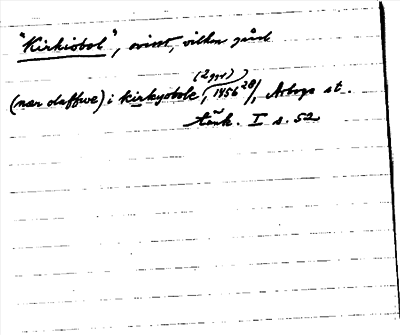 "Kirkiobol", ovisst, vilken gård
(2 ggr)
(nær daffwe) i kirkyobole, 1456 28/, Arboga st.
tänk. I s. 52